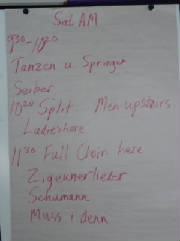 Sat AM
9:30 - 10:20
Tanzen u. Springen
Seiber
10:20 Split - Men upstairs
Ladies here
11:30 Full Choir here
Zigeunerlieder
Schumann
Muss i denn